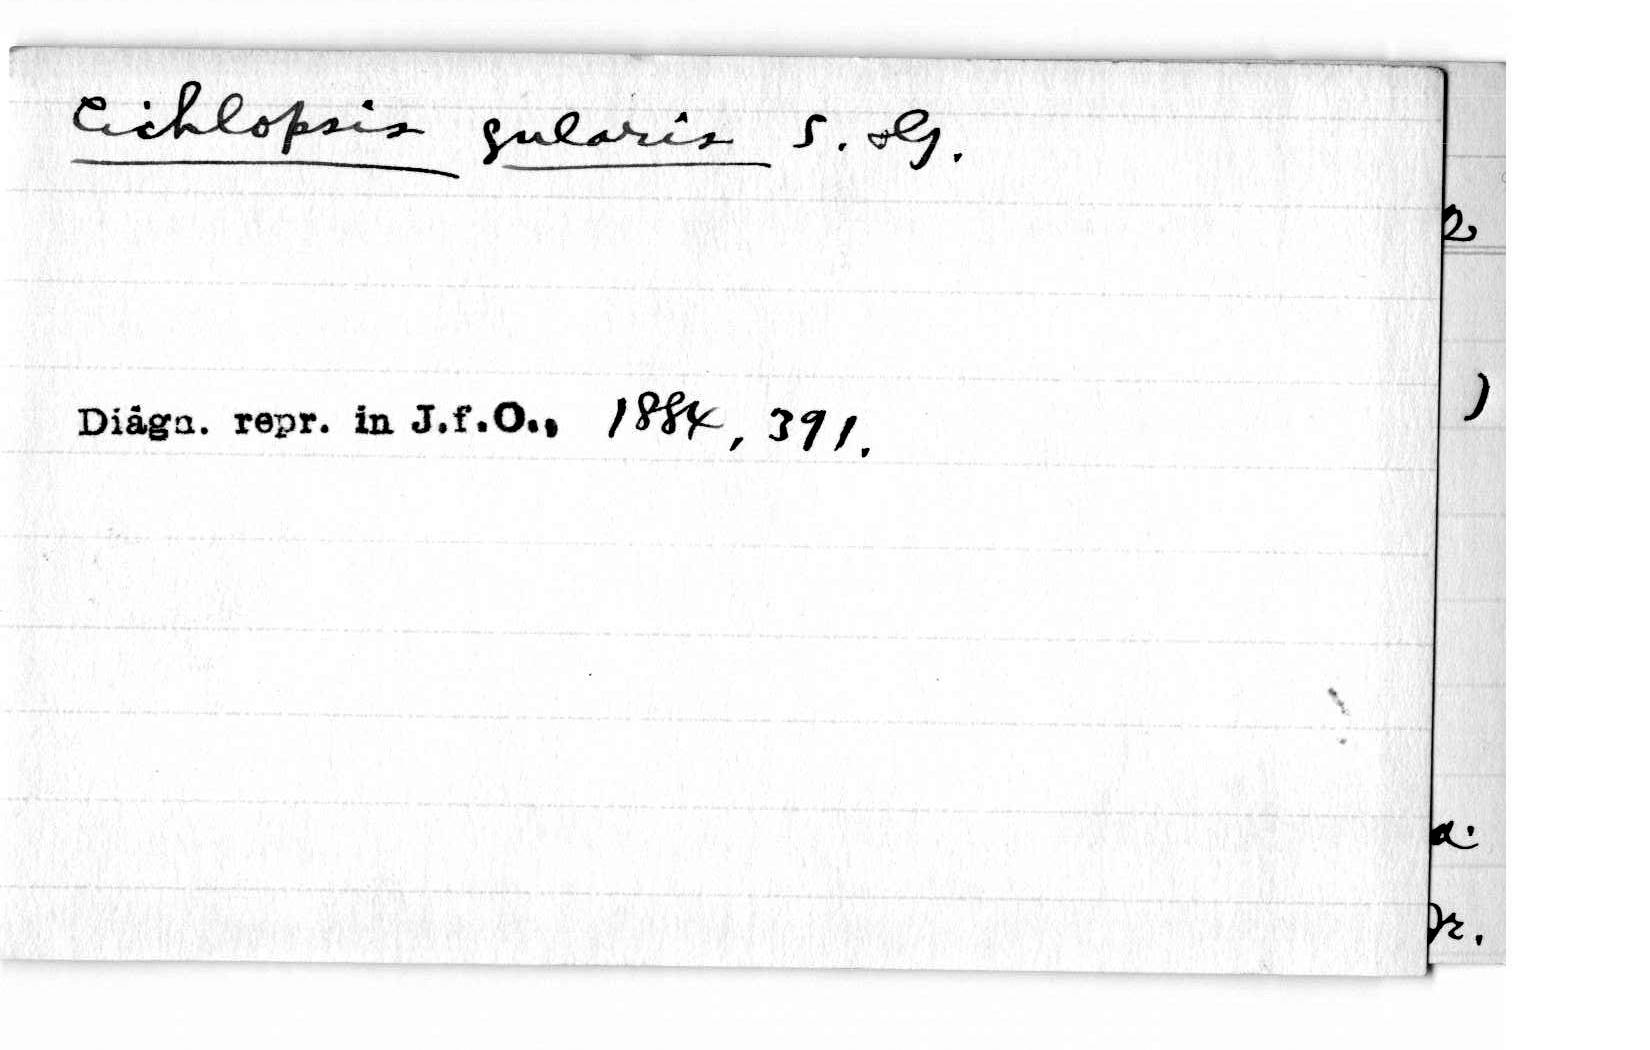 Cichlopsis gularis S. & G.
Diagn. repr. in J.f.O., 1884, 391.
)
a.